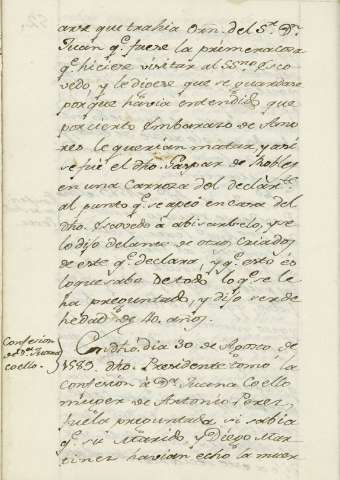 arse que trahia Orn. del S.r D.n
Juan q.e fuese la primera cosa
q.e hiciese visitar al SS.no Esco
vedo, y le digese que se guardase
porque havia entendido que
por cierto Embarazo de Amo
res le querian matar, y asi
se fue el dho. Gaspar de Robles
en una Carroza del declar.te
al punto q.e se apeó en casa del
dho. Escovedo á abisarselo, y se
lo dijo delante de otros criados
de este q.e declara, y q.e esto es
lo que sabe de todo lo q.e se le
ha preguntado, y dijo ser de
hedad de 40. años.
Confesion
de D.a Juana
Coello.
En dho. dia 30 de Agosto de
1589. dho. Presidente tomó la
confesion á D.a Juana Coello
muger de Antonio Perez,
fuela preguntada si sabia
q.e su Marido, y Diego Mar
tinez havian echo la muer